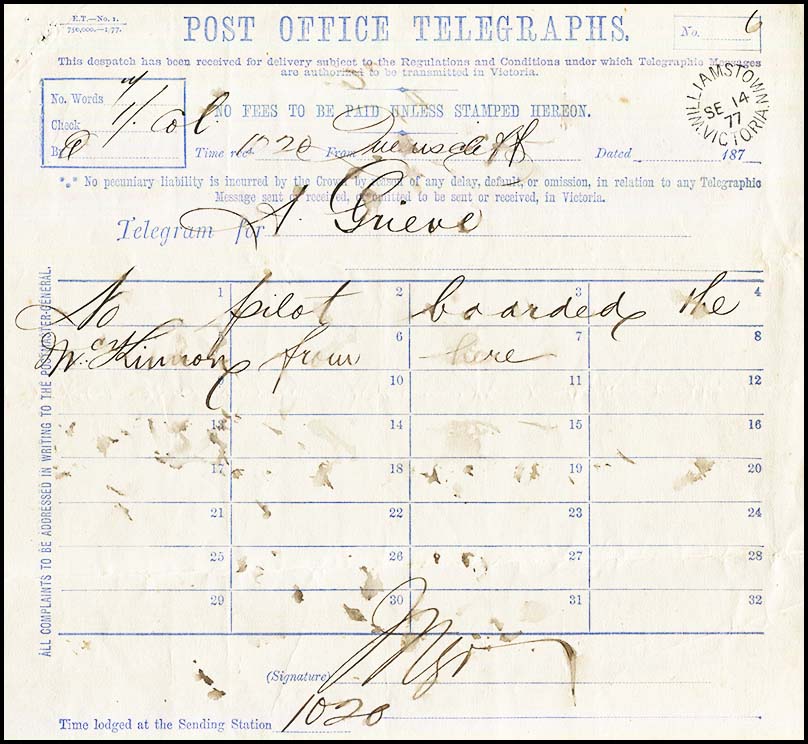 E.T.—No. 1.
750,000.—1/77.
POST OFFICE TELEGRAPHS.
No. 6
This despatch has been received for delivery subject to the Regulations and Conditions under which Telegraphic Messages
are authorized to be transmitted in Victoria.
WILLIAMSTOWN
SE 14
77
VICTORIA
No. Words
Check
By
NO FEES TO BE PAID UNLESS STAMPED HEREON.
Time recd 1020 From Queenscliff Dated 187
*** No pecuniary liability is incurred by the Crown by reason of any delay, default, or omission, in relation to any Telegraphic
Message sent or received, or omitted to be sent or received, in Victoria.
Telegram for A. Grieve
1 2 3 4
No pilot boarded the
5 6 7 8
McKinnon from here
10 11 12
13 14 15 16
17 18 19 20
21 22 23 24
25 26 27 28
29 30 31 32
ALL COMPLAINTS TO BE ADDRESSED IN WRITING TO THE POSTMASTER-GENERAL.
(Signature) Mgr
Time lodged at the Sending Station 1020